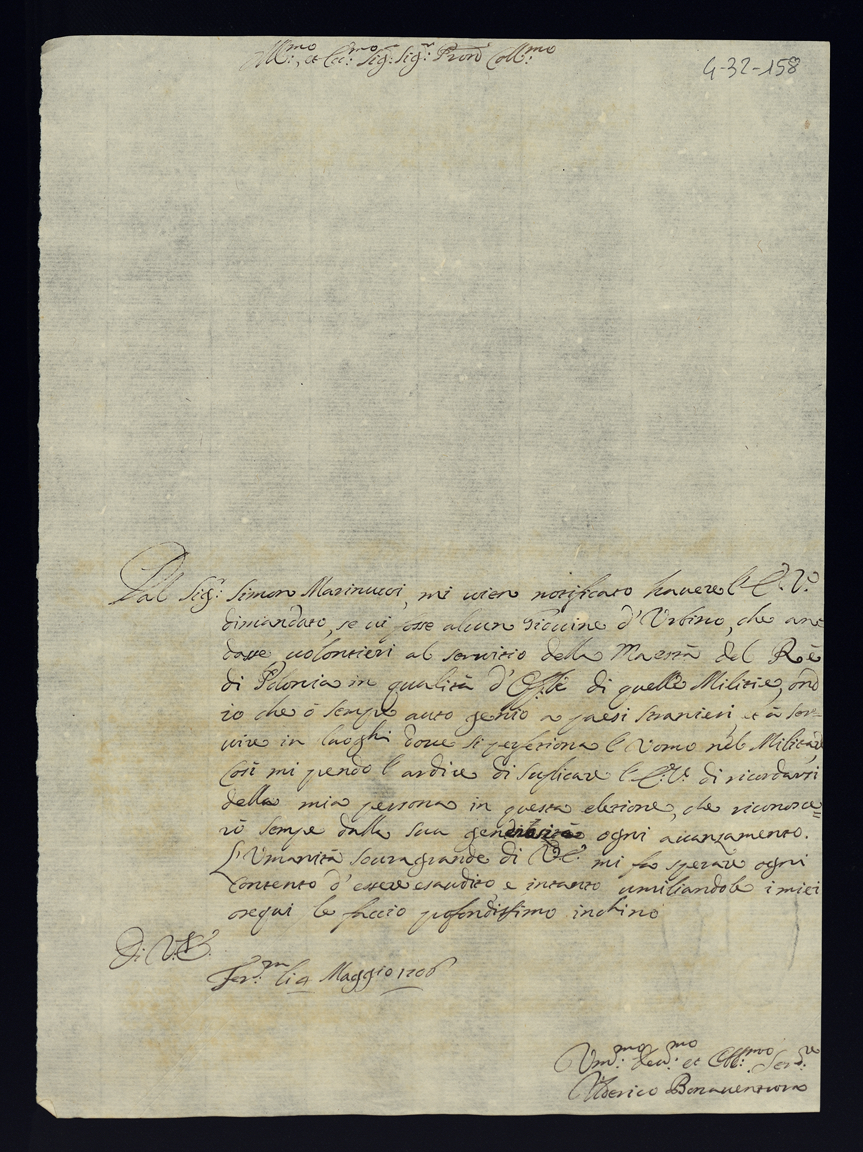 Ill:mo, et Ecc:mo Sig: Sig:r Pron Coll:mo
4-32-158
Dal Sig: Simon Marinucci, mi vien notificato havere l'E. V.
dimandato, se vi fosse alcun Giovine d'Urbino, che an=
dasse volontieri al servitio della Maestà del Rè
di Polonia in qualità d'Off.le di quelle Militie, ond
io che ò sempre auto genio a paesi stranieri, et à ser=
vire in luoghi dove si perfeziona l'Uomo nel Militare
Così mi prendo l'ardire di suplicare l'E.V. di ricordarsi
della mia persona in questa elezione, che riconosce=
rò sempe dalla sua generosità ogni avanzamento.
L'Umanità sovragrande di V.E. mi fa sperare ogni
Contento d'essere esaudito e intanto umiliandole i miei
osequi le faccio profondissimo inchino
Di V.E.
li 9 Maggio 1706
Um:mo Dev:mo et Obb:mo Ser:re
Uderico Bonaventura